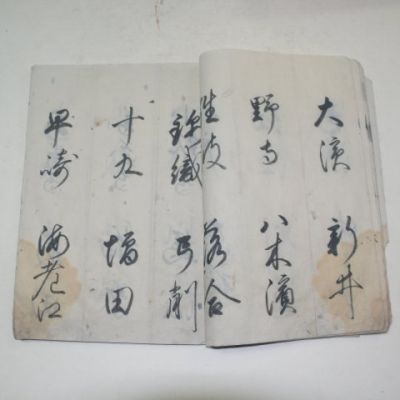 大濱 新井
野寺 八木濱
生駮 落合
錦織 弓削
十九 増田
早崎 海老江